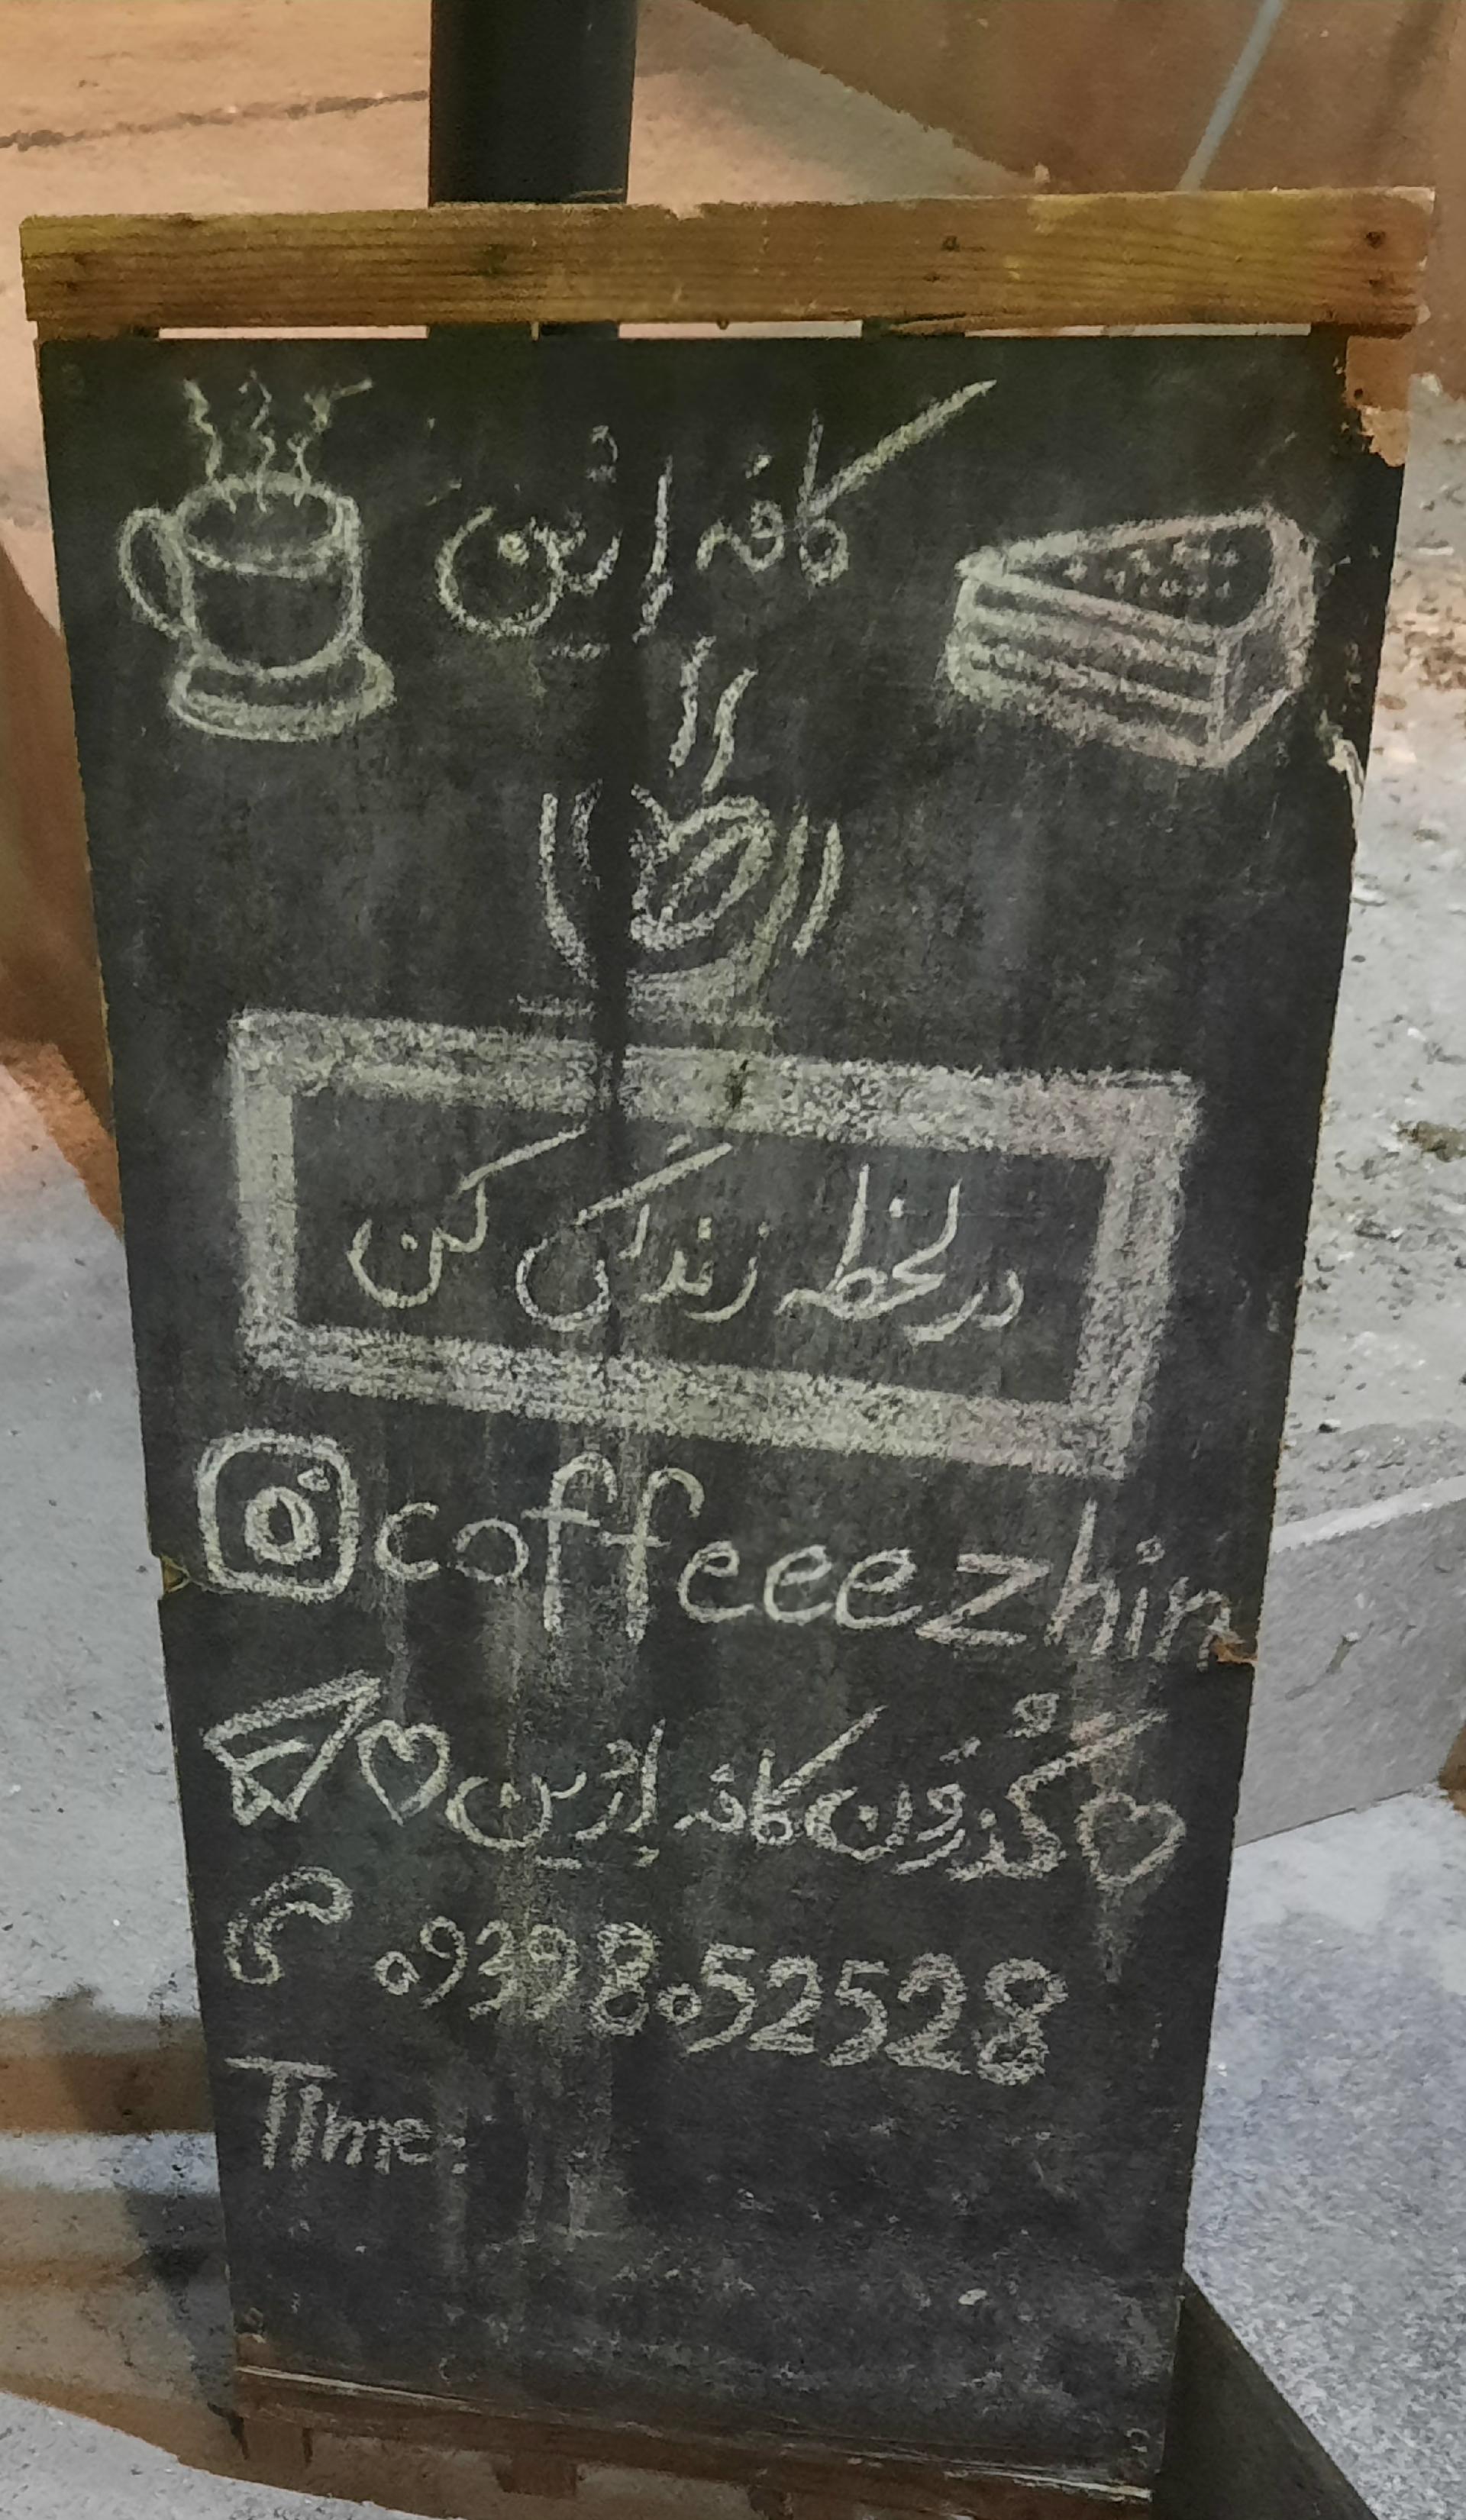 کافه اِژین
در لحظه زندگی کن
coffeeezhin
گذرِوُن کافه اِژین
09398052528
TIme: